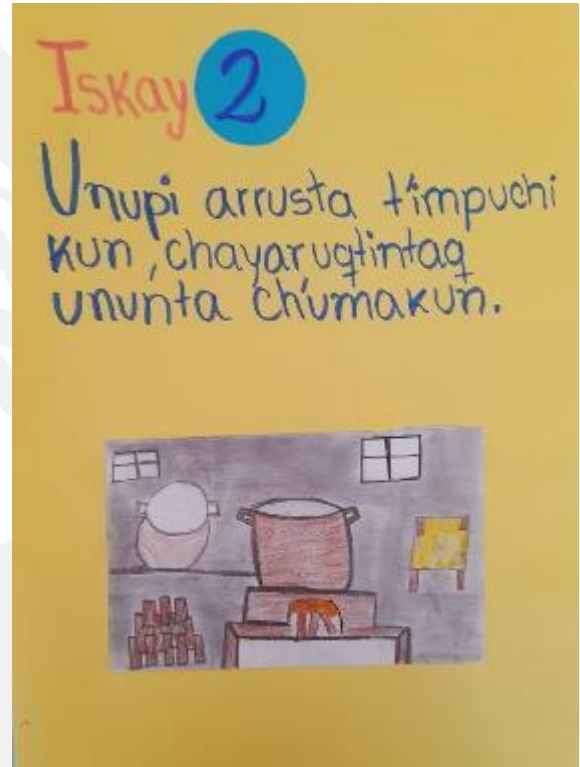 Iskay 2
Unupi arrusta t'impuchi
kun, chayaruqtintaq
ununta ch'umakun.